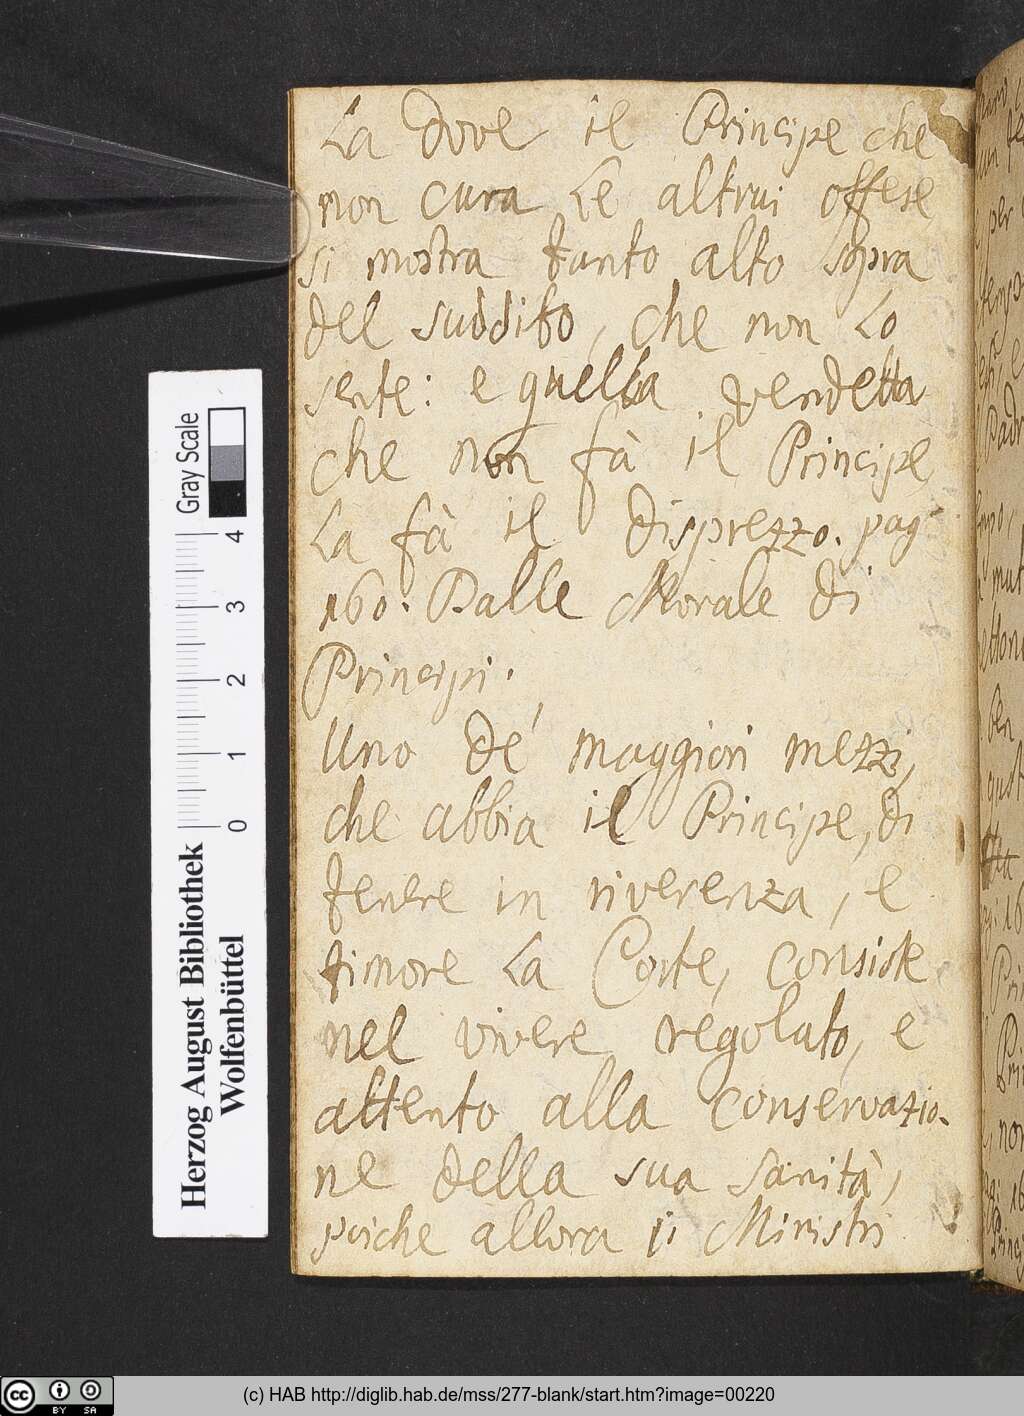 La dove il Principe che
non cura Le altrui offese
si mostra tanto alto sopra
del suddito, che non Lo
sente: e quella vendetta
che non fà il Principe
La fà il disprezzo. pag
160. Dalle Morale di
Principi.
Uno de' maggiori mezzi,
che abbia il Principe, di
tenere in riverenza, e
timore La Corte, consiste
nel vivere regolato, e
attento alla conservazio-
ne della sua sanità,
poiche allora ii Ministri
Gray Scale
4
3
2
1
0
Herzog August Bibliothek
Wolfenbüttel
per
Pri
non
cc BY SA
(c) HAB http://diglib.hab.de/mss/277-blank/start.htm?image=00220